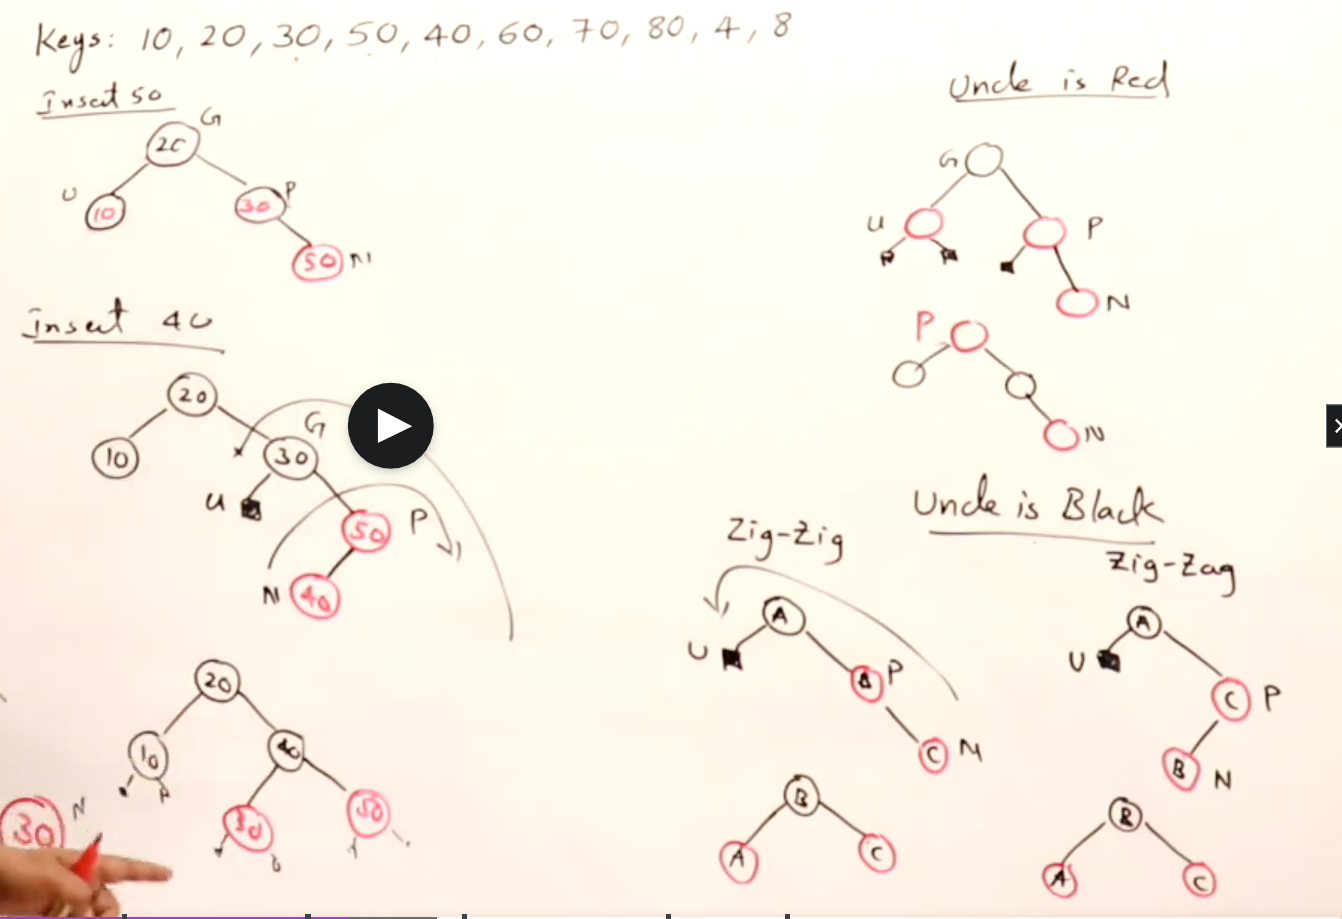 Keys: 10, 20, 30, 50, 40, 60, 70, 80, 4, 8
Insert 50
G
20
U
10
30
P
50
N
Insert 40
20
10
G
30
U
50
P
N
40
20
10
40
30
50
30
N
Uncle is Red
G
U
P
N
P
N
Uncle is Black
Zig-Zig
A
U
P
C
N
B
A
C
Zig-Zag
A
U
C
P
B
N
B
A
C